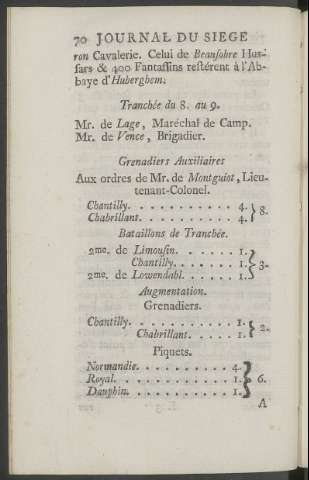 70 JOURNAL DU SIEGE
ron Cavalerie. Celui de Beausobre Hus-
sars & 400 Fantassins restérent à l'Ab-
baye d'Huberghem.
Tranchée du 8. au 9.
Mr. de Lage, Maréchal de Camp.
Mr. de Vence, Brigadier.
Grenadiers Auxiliaires
Aux ordres de Mr. de Montguiot, Lieu-
tenant-Colonel.
Chantilly. . . . . . . . . . . 4. } 8.
Chabrillant. . . . . . . . . . 4.
Bataillons de Tranchée.
2me. de Limousin. . . . . . . 1. } 3.
Chantilly. . . . . . . 1.
2me. de Lowendahl. . . . . . 1.
Augmentation.
Grenadiers.
Chantilly. . . . . . . . . . . 1. } 2.
Chabrillant. . . . . . 1.
Piquets.
Normandie. . . . . . . . . . 4. } 6.
Royal. . . . . . . . . . . . . 1.
Dauphin. . . . . . . . . . . 1.
A